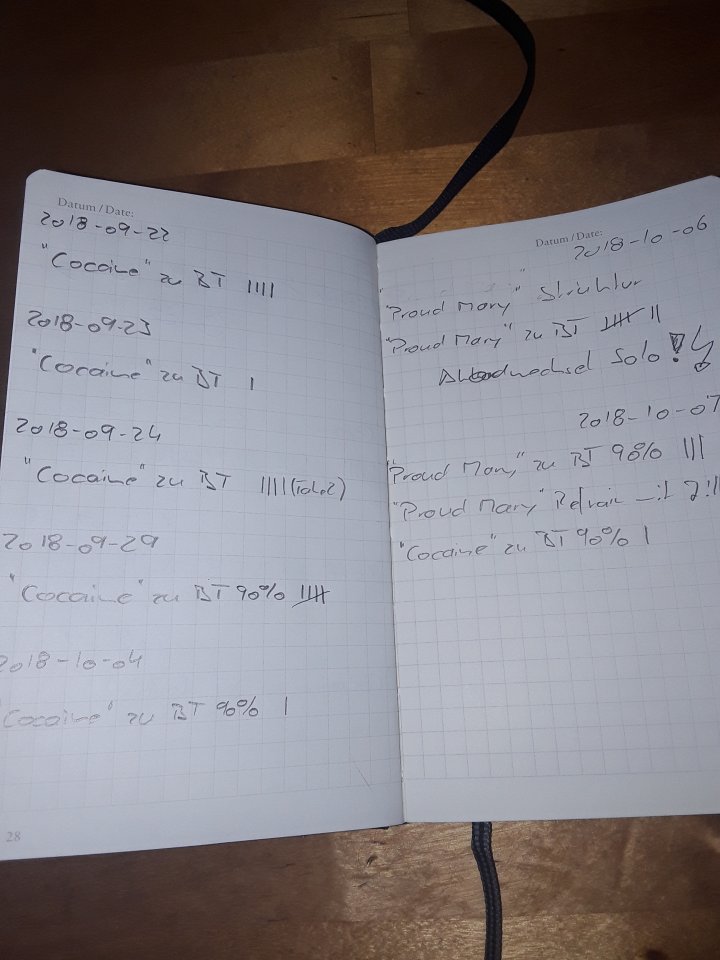 Datum / Date:
2018-09-22
"Cocaine" zu BT ||||
2018-09-23
"Cocaine" zu BT |
2018-09-24
"Cocaine" zu BT ||||
2018-09-29
"Cocaine" zu BT 90% 卌
2018-10-04
"Cocaine" zu BT 90% |
28
Datum / Date:
2018-10-06
"Proud Mary" Struktur
"Proud Mary" zu BT 卌 ||
Solo
2018-10-07
"Proud Mary" zu BT 90% |||
"Proud Mary" Refrain mit
"Cocaine" zu BT 90% |